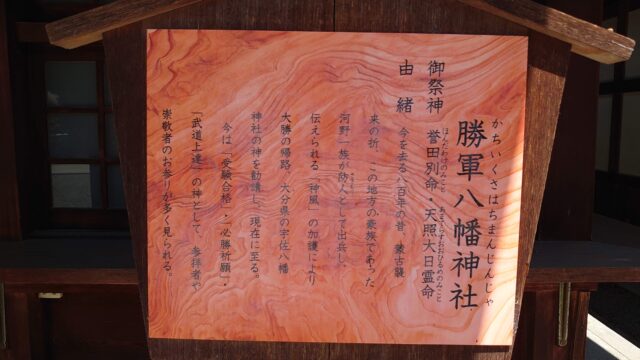 かちいくさはちまんじんじゃ
勝軍八幡神社
ほんだわけのみこと あまてらすおおひるめのみこと
御祭神 誉田別命・天照大日霊命
由緒 今を去る八百年の昔、蒙古襲
来の折、この地方の豪族であった
河野一族が防人として出兵し、
伝えられる「神風」の加護により
大勝の帰路、大分県の宇佐八幡
神社の神を勧請し、現在に至る。
今は「受験合格」・「必勝祈願」・
「武道上達」の神として、参拝者や
崇敬者のお参りが多く見られる。